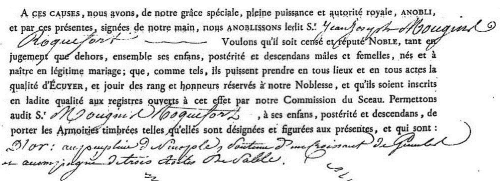 A CES CAUSES, nous avons, de notre grâce spéciale, pleine puissance et autorité royale, ANOBLI,
et par ces présentes, signées de notre main, nous ANOBLISSONS ledit S.r Jean Joseph Mougins
Roquefort Voulons qu'il soit censé et réputé NOBLE, tant en
jugement que dehors, ensemble ses enfans, postérité et descendans mâles et femelles, nés et à
naître en légitime mariage; que, comme tels, ils puissent prendre en tous lieux et en tous actes la
qualité d'ÉCUYER, et jouir des rang et honneurs réservés à notre Noblesse, et qu'ils soient inscrits
en ladite qualité aux registres ouverts à cet effet par notre Commission du Sceau. Permettons
audit S.r Mougins Roquefort, à ses enfans, postérité et descendans, de
porter les Armoiries timbrées telles qu'elles sont désignées et figurées aux présentes, et qui sont :
D'or: au peuplier de Sinople, soutenu d'un croissant de Gueules
et accompagné de trois étoiles de Sable.